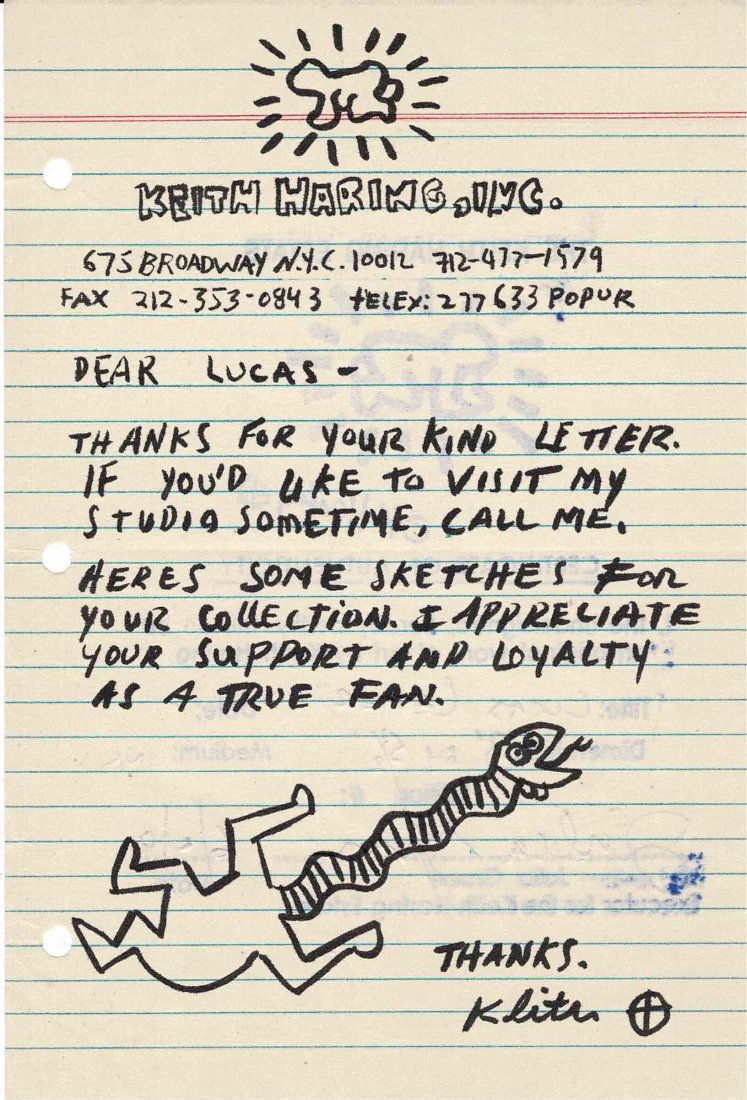 KEITH HARING, INC.
675 BROADWAY N.Y.C. 10012 212-477-1579
FAX 212-353-0843 TELEX: 277633 POPUR
DEAR LUCAS -
THANKS FOR YOUR KIND LETTER.
IF YOU'D LIKE TO VISIT MY
STUDIO SOMETIME, CALL ME.
HERES SOME SKETCHES FOR
YOUR COLLECTION. I APPRECIATE
YOUR SUPPORT AND LOYALTY
AS A TRUE FAN.
THANKS.
Keith